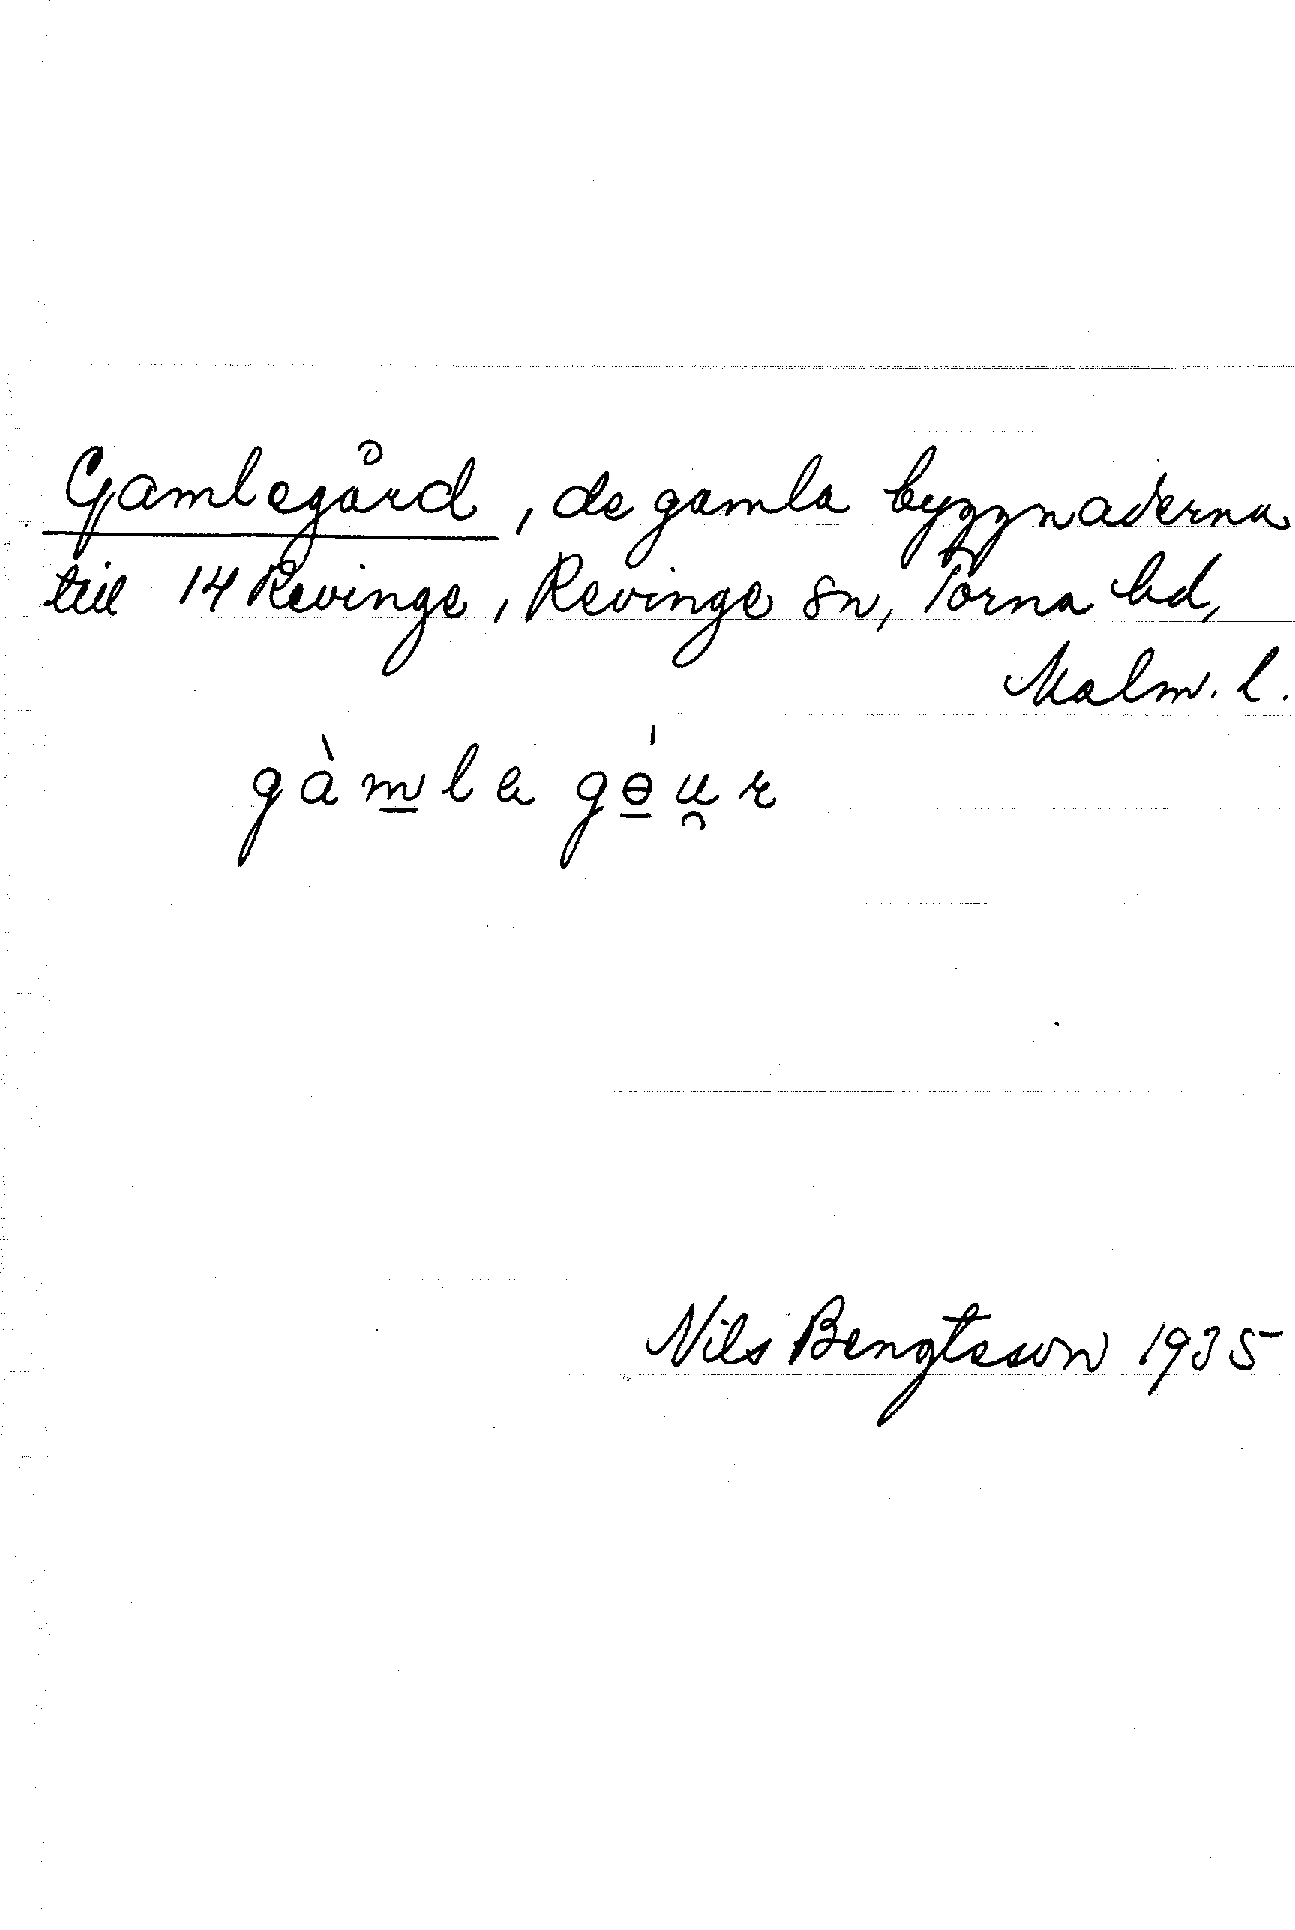 Gamlegård, de gamla byggnaderna
till 14 Revinge, Revinge sn, Torna hd,
Malm. l.
gàmla gɵ́u̯r
Nils Bengtsson 1935